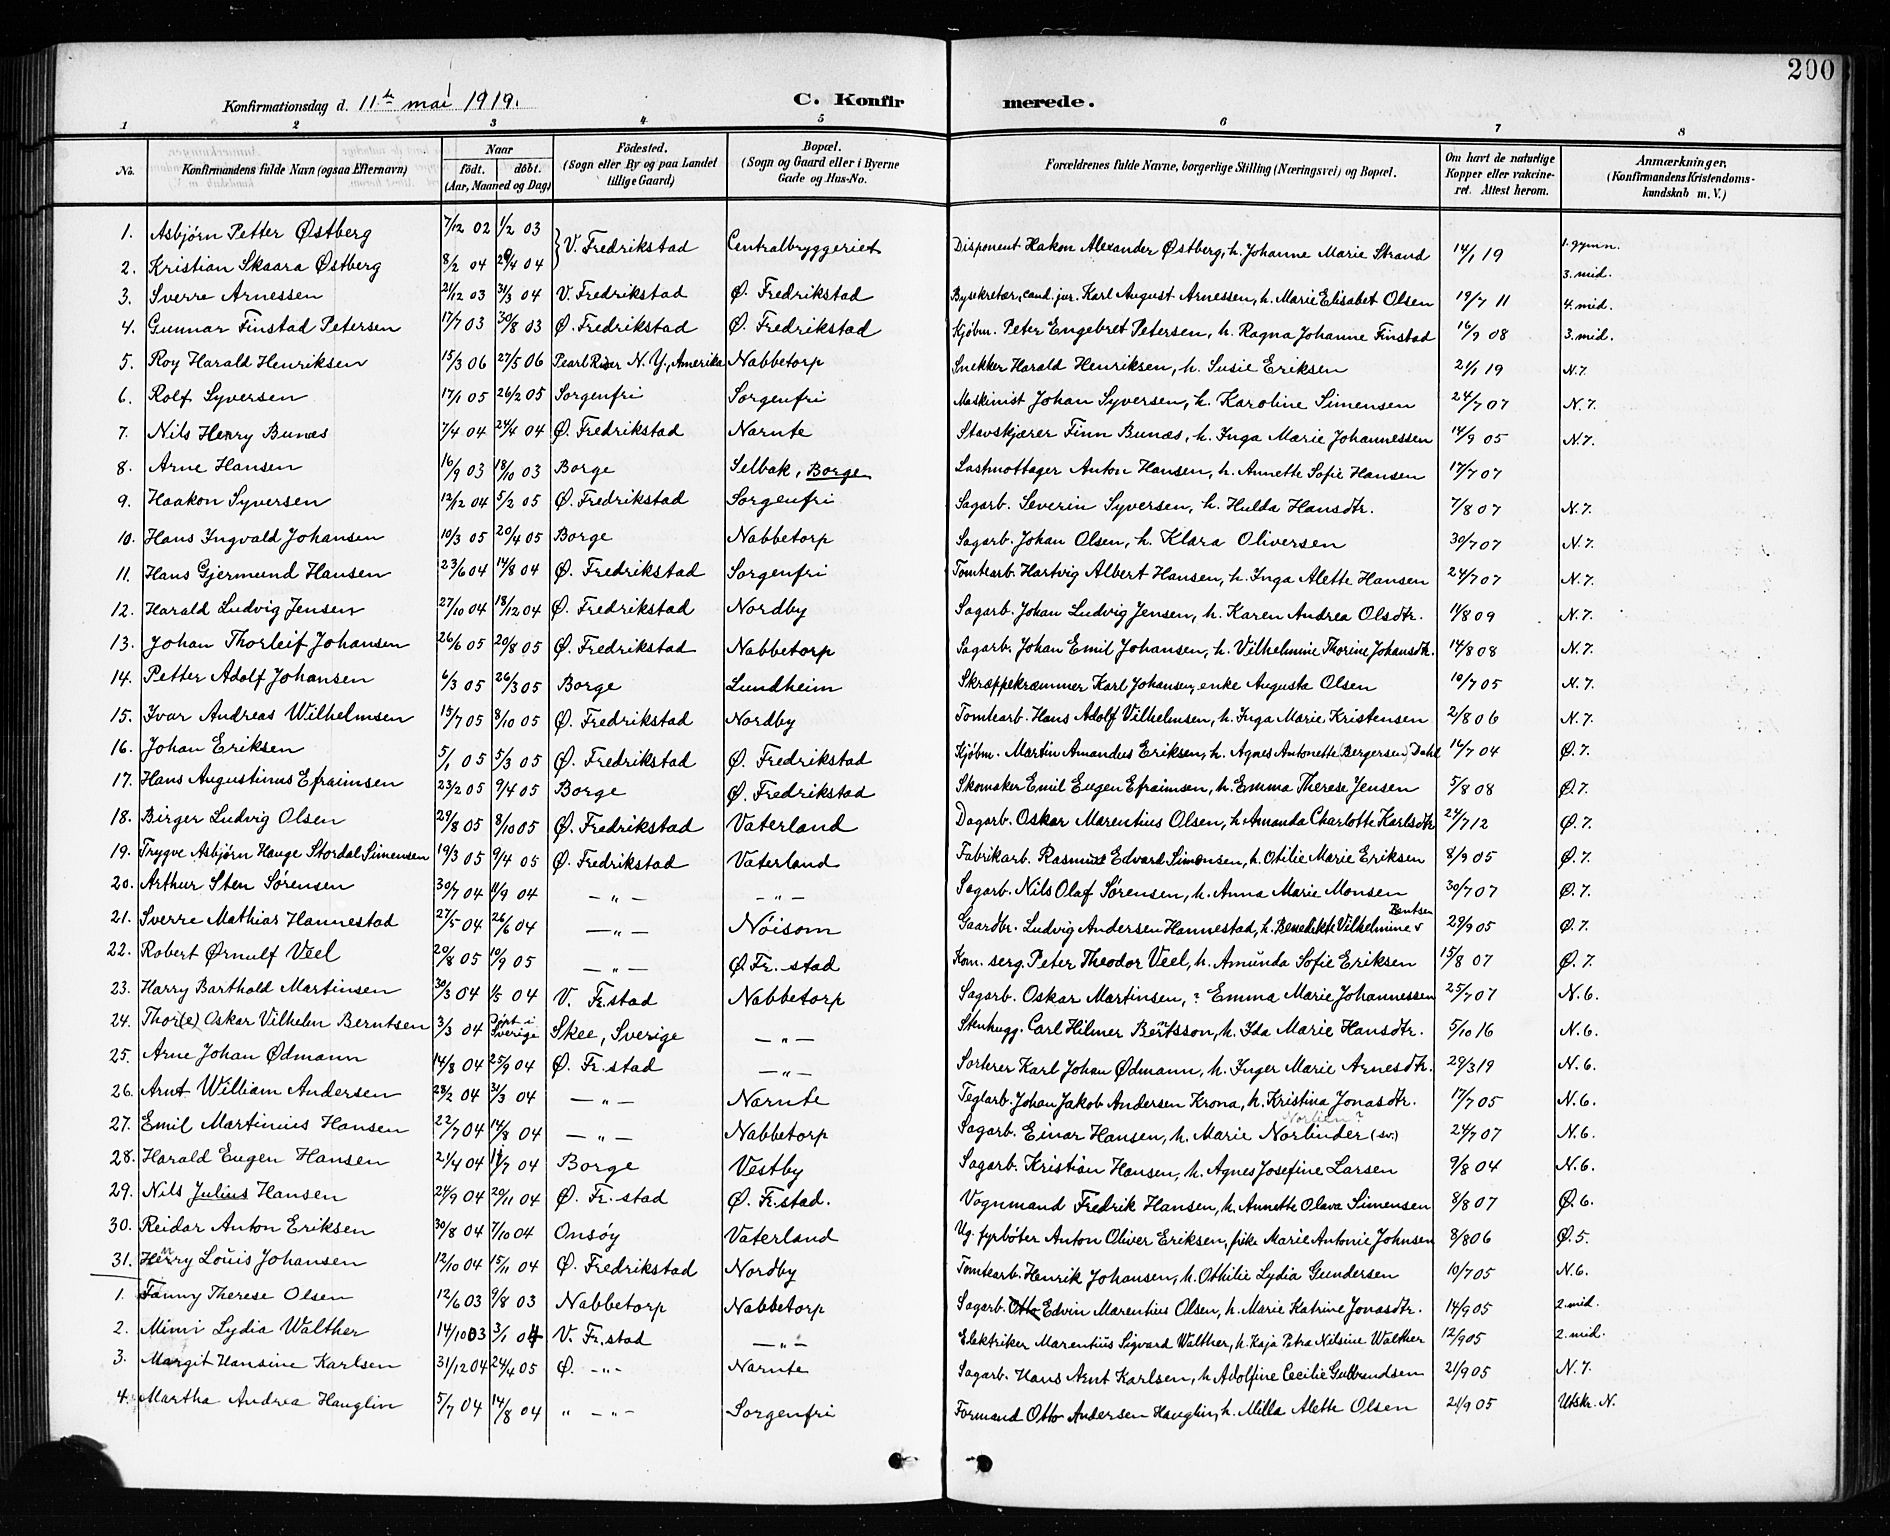 200
Konfirmationsdag d. 11te mai 1919.
C. Konfirmerede.
1 2 3 4 5 6 7 8
No. Konfirmandens fulde Navn (ogsaa Efternavn) Naar født. døbt. (Aar, Maaned og Dag) Födested. (Sogn eller By og paa Landet tillige Gaard) Bopæl. (Sogn og Gaard eller i Byerne Gade og Hus-No. Forældrenes fulde Navne, borgerlige Stilling (Næringsvei) og Bopæl. Om havt de naturlige Kopper eller vakcineret. Attest herom. Anmærkninger, (Konfirmandens Kristendomskundskab m. V.)
1. Asbjørn Petter Østberg 7/12 02 1/2 03 } V. Fredrikstad Centralbryggeriet Disponent Hakon Alexander Østberg, h. Johanne Marie Strand 14/1 19 1. gymn.
2. Kristian Skaara Østberg 8/2 04 4 04 3. mid.
3. Sverre Arnessen 21/12 03 31/3 04 V. Fredrikstad Ø. Fredrikstad Bysekretær, cand. jur. Karl August Arnessen, h. Marie Elisabet Olsen 19/7 11 4. mid.
4. Gunnar Finstad Petersen 17/7 03 30/8 03 Ø. Fredrikstad Ø. Fredrikstad Kjøbm. Peter Engebret Petersen, h. Ragna Johanne Finstad 16/9 08 3. mid.
5. Roy Harald Henriksen 15/3 06 27/5 06 Pearl River N. Y., Amerika Nabbetorp Snekker Harald Henriksen, h. Susie Eriksen 21/1 19 N. 7.
6. Rolf Syversen 17/1 05 26/2 05 Sorgenfri Sorgenfri Maskinist Johan Syversen, h. Karoline Simensen 24/7 07 N. 7.
7. Nils Henry Bunæs 7/4 04 24/4 04 Ø. Fredrikstad Narnte Stavskjærer Finn Bunæs, h. Inga Marie Johannessen 14/9 05 N. 7.
8. Arne Hansen 16/9 03 18/10 03 Borge Selbak, Borge Lastmottager Anton Hansen, h. Annette Sofie Hansen 17/7 07
9. Haakon Syversen 12/12 04 5/2 05 Ø. Fredrikstad Sorgenfri Sagarb. Severin Syversen, h. Hulda Hansdtr. 7/8 07 N. 7.
10. Hans Ingvald Johansen 10/3 05 20/4 05 Borge Nabbetorp Sagarb. Johan Olsen, h. Klara Oliversen 30/7 07 N. 7.
11. Hans Gjermund Hansen 23/6 04 14/8 04 Ø. Fredrikstad Sorgenfri Tomtearb. Hartvig Albert Hansen, h. Inga Alette Hansen 24/7 07 N. 7.
12. Harald Ludvig Jensen 27/10 04 18/12 04 Ø. Fredrikstad Nordby Sagarb. Johan Ludvig Jensen, h. Karen Andrea Olsdtr. 11/8 09 N. 7.
13. Johan Thorleif Johansen 26/6 05 20/8 05 Ø. Fredrikstad Nabbetorp Sagarb. Johan Emil Johansen, h. Vilhelmine Thorine Johansdtr. 14/8 08 N. 7.
14. Petter Adolf Johansen 6/3 05 26/3 05 Borge Lundheim Skræppekræmmer Karl Johansen, enke Augusta Olsen 10/7 05 N. 7.
15. Ivar Andreas Wilhelmsen 15/7 05 8/10 05 Ø. Fredrikstad Nordby Tomtearb. Hans Adolf Vilhelmsen, h. Inga Marie Kristensen 2/8 06 N. 7.
16. Johan Eriksen 5/1 05 5/3 05 Ø. Fredrikstad Ø. Fredrikstad Kjøbm. Martin Amandus Eriksen, h. Agnes Antonette (Bergersen) Dahl 16/7 04 Ø. 7.
17. Hans Augustinus Efraimsen 23/2 05 9/4 05 Borge Ø. Fredrikstad Skomaker Emil Eugen Efraimsen, h. Emma Therese Jensen 5/8 08 Ø. 7.
18. Birger Ludvig Olsen 29/8 05 8/10 05 Ø. Fredrikstad Vaterland Dagarb. Oskar Marentius Olsen, h. Amanda Charlotte Karlsdtr 24/7 12 Ø. 7.
19. Trygve Asbjørn Hauge Stordal Simensen 19/3 05 9/4 05 Ø. Fredrikstad Vaterland Fabrikarb. Rasmus Edvard Simensen, h. Otilie Marie Eriksen 8/9 05 Ø. 7.
20. Arthur Sten Sørensen 30/7 04 11/9 04 — „ — — „ — Sagarb. Nils Olaf Sørensen, h. Anna Marie Monsen 30/7 07 Ø. 7.
21. Sverre Mathias Hannestad 27/5 04 26/6 04 — „ — Nöisom Gaardbr. Ludvig Andersen Hannestad, h. Benedikte Vilhelmine Bentsen 29/9 05 Ø. 7.
22. Robert Ørnulf Veel 20/8 05 10/9 05 — „ — Ø. Fr. stad Kom. serg. Peter Theodor Veel, h. Amunda Sofie Eriksen 15/8 07 Ø. 7.
23. Harry Barthold Martinsen 30/3 04 1/5 04 V. Fr. stad Nabbetorp Sagarb. Oskar Martinsen, ? Emma Marie Johannessen 25/7 07 N. 6.
24. Thor(e) Oskar Vilhelm Berntsen 3/3 04 Döpt i Sverige Skee, Sverige — „ — Stenhugg. Carl Hilmer Berntsson, h. Ida Marie Hansdtr. 5/10 16 N. 6.
25. Arne Johan Ødmann 14/8 04 25/9 04 Ø. Fr. stad — „ — Sorterer Karl Johan Ødmann, h. Inger Marie Arnesdtr. 29/3 19 N. 6.
26. Arnt William Andersen 28/2 04 31/3 04 — „ — Narnte Teglarb. Johan Jakob Andersen Krona, h. Kristina Jonasdtr. 17/7 05 N. 6.
27. Emil Martinius Hansen 22/7 04 14/8 04 — „ — Nabbetorp Sagarb. Einar Hansen, h. Marie Norlinder (sv.) 24/7 07 N. 6.
28. Harald Eugen Hansen 21/4 04 17/7 04 Borge Vestby Sagarb. Kristian Hansen, h. Agnes Josefine Larsen 9/8 04 N. 6.
29. Nils Julius Hansen 24/9 04 20/11 04 Ø. Fr. stad Ø. Fr. stad. Vognmand Fredrik Hansen, h. Annette Olava Simensen 8/8 07 Ø. 6.
30. Reidar Anton Eriksen 30/8 04 7/10 04 Onsöy Vaterland Ug. fyrböter Anton Oliver Eriksen, pike Marie Antonie Johnsen 8/8 06 Ø. 5.
31. Henry Louis Johansen 12/10 04 15/11 04 Ø. Fredrikstad Nordby Tomtearb. Henrik Johansen, h. Othilie Lydia Gundersen 10/7 05 N. 6.
1. Fanny Therese Olsen 12/6 03 9/8 03 Nabbetorp Nabbetorp Sagarb. Otto Edvin Marentius Olsen, h. Marie Katrine Jonasdtr. 14/9 05 2. mid.
2. Mimi Lydia Walther 14/10 03 3/1 04 V. Fr. stad — „ — Elektriker Marentius Sigvard Walther, h. Kaja Petra Nilsine Walther 12/9 05 2. mid.
3. Margit Hansine Karlsen 31/12 04 24/4 05 Ø. — „ — Narnte Sagarb. Hans Arnt Karlsen, h. Adolfine Cecilie Gulbrandsen 21/9 05 N. 7.
4. Martha Andrea Hauglin 5/7 04 14/8 04 „ — „ — Sorgenfri Formand Otto Andersen Hauglin, h. Milla Alette Olsen 21/9 05 Utskr. N.